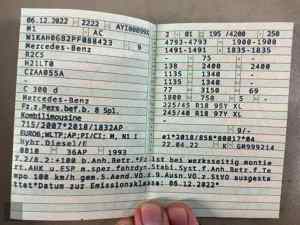 06.12.2022 2222
M1 AC
Mercedes-Benz
R2CS
H21LT0
CZAA055A
C 300 d
Mercedes-Benz
Fz.z.Pers.bef.b. 8 Spl.
Kombilimousine
715/2007*2018/1832AP
EURO6;WLTP;AP;PI/CI; M, N1 I
Hybr.Diesel/E
0018 36AP 1993
2 01 195 /4200 250
4792-4793 1900-1900
1491-1491 1835-1835
75
138 2400 2400
1135 1340
1135 1340
77 3150 69
1800 750 5
225/45 R18 95Y XL
225/45 R18 95Y XL
9/-
22.04.22 K
7.2/8.2:+100 b.Anh.Betr.*Fz ist bei werkseitig montie
rt.AHK u.ESP m.spez.fahrdyn.Stab.Syst.f.Anh.Betr.f.Te
mpo 100 km/h gem.
StVO ausgesta
ttet*Datum zur Emissionsklasse: 06.12.2022*